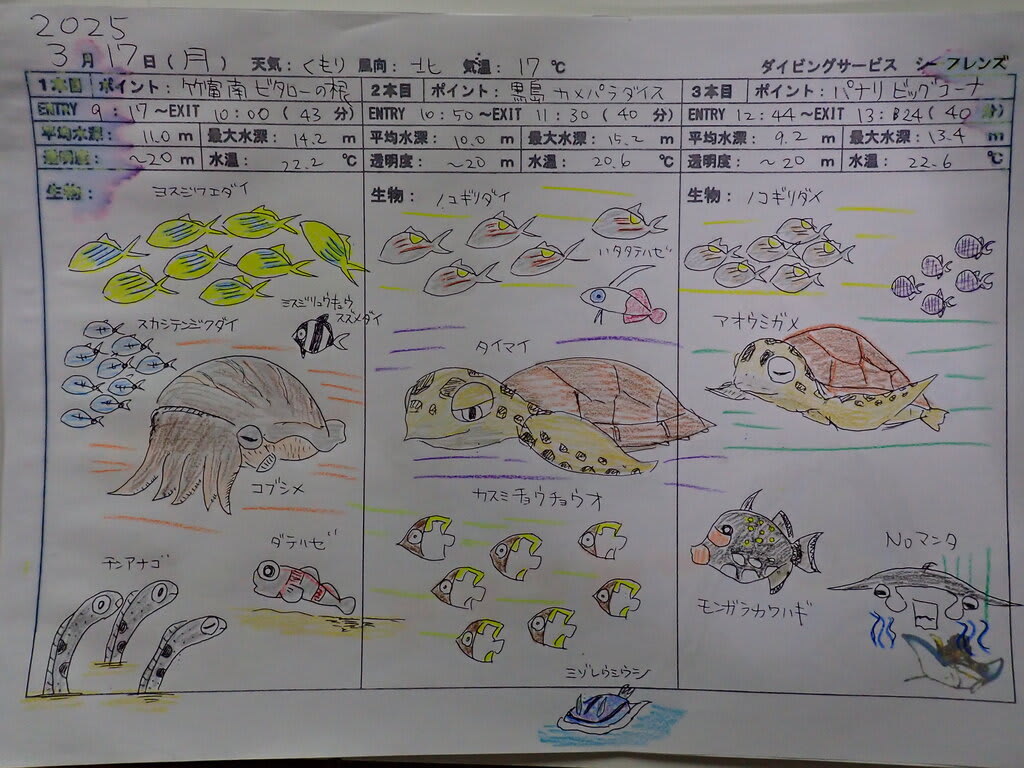 2025
3月17日(月) 天気: くもり 風向: 北 気温: 17℃ ダイビングサービス シーフレンズ
1本目 ポイント: 竹富南ビタローの根 2本目 ポイント: 黒島 カメパラダイス 3本目 ポイント: パナリ ビッグコーナー
ENTRY 9:17~EXIT 10:00(43分) ENTRY 10:50~EXIT 11:30(40分) ENTRY 12:44~EXIT 13:24(40分)
平均水深: 11.0 m 最大水深: 14.2 m 平均水深: 10.0 m 最大水深: 15.2 m 平均水深: 9.2 m 最大水深: 13.4 m
透明度: ~20 m 水温: 22.2 ℃ 透明度: ~20 m 水温: 20.6 ℃ 透明度: ~20 m 水温: 22.6 ℃
生物: ヨスジフエダイ 生物: ノコギリダイ 生物: ノコギリダメ
ハタタテハゼ
ミスジリュウキュウ
スズメダイ
スカシテンジクダイ
アオウミガメ
タイマイ
コブシメ
カスミチョウチョウオ
ダテハゼ
Noマンタ
チンアナゴ
モンガラカワハギ
ミゾレウミウシ